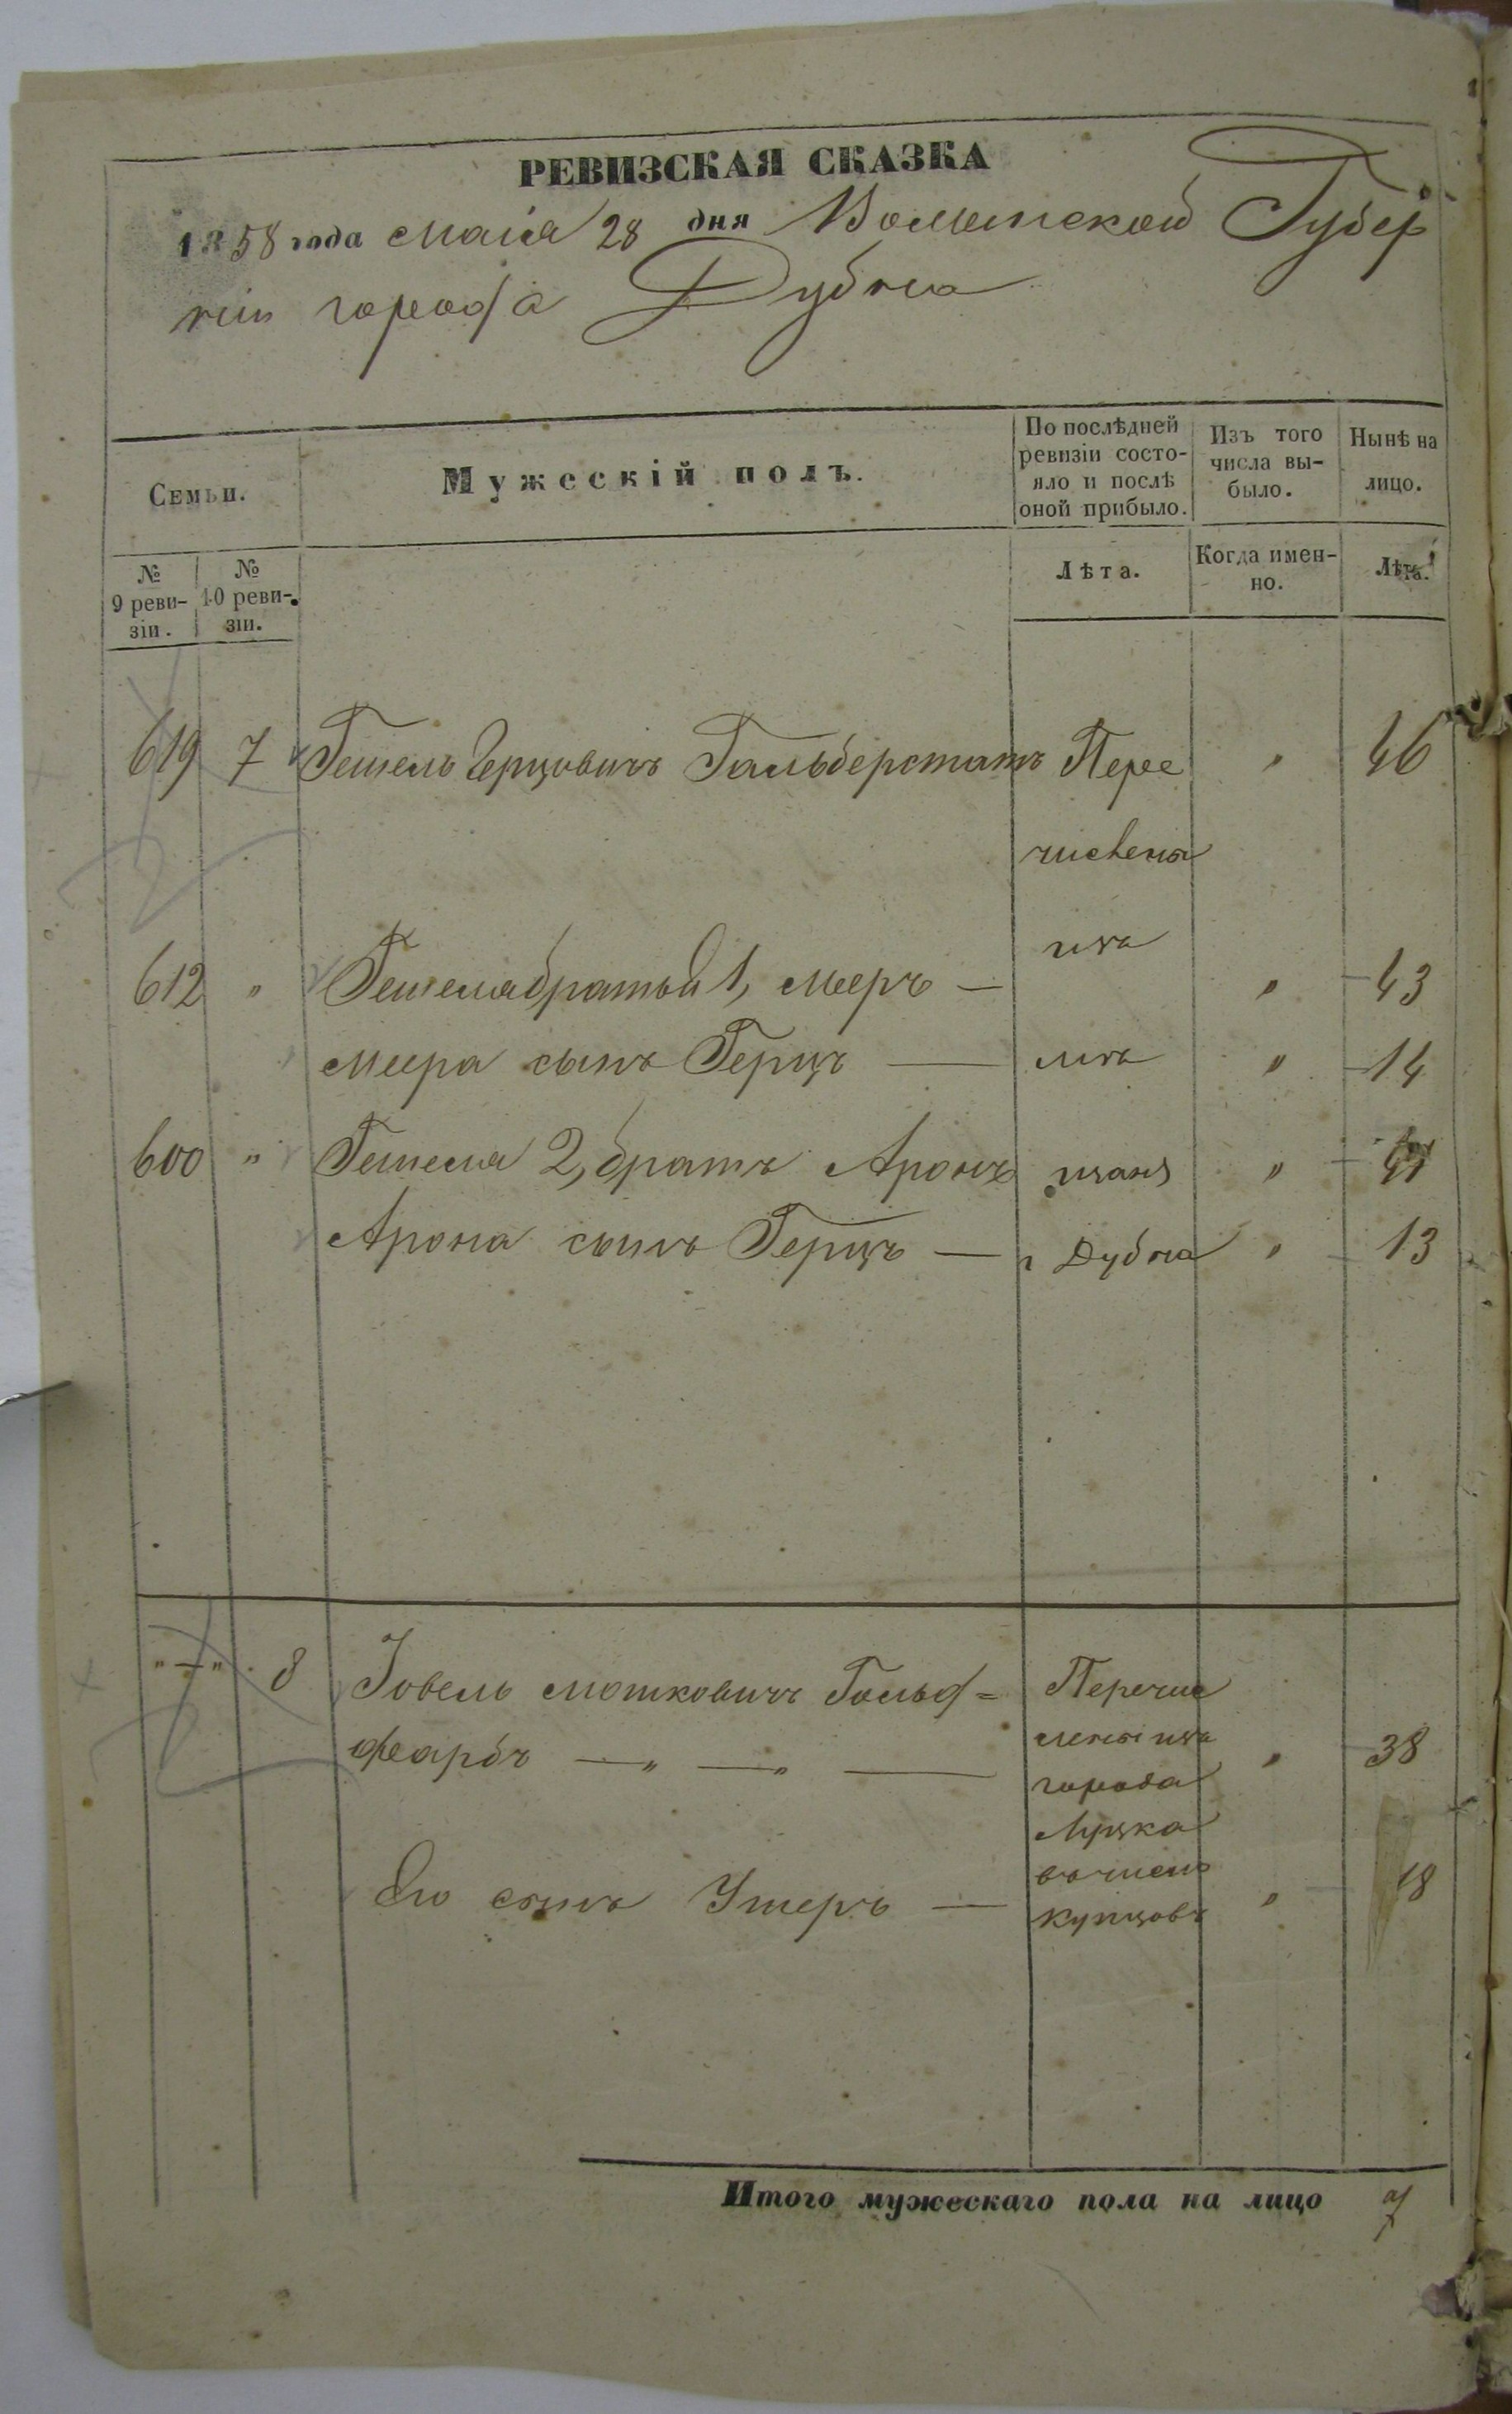 РЕВИЗСКАЯ СКАЗКА
1858 года Маія 28 дня Волынской Губер
ніи города Дубна
Семьи.
Мужескій полъ.
По послѣдней ревизіи состо-
яло и послѣ оной прибыло.
Изъ того числа вы-
было.
Нынѣ на лицо.
№ 9 реви-
зіи.
№ 10 реви-
зіи.
Лѣта.
Когда имен-
но.
Лѣта.
619 7 Гешель Герцовичъ Гальберстатъ Пере " 46
числены
изъ
612 " Гешеля братьи 1, Меръ — " 43
Меера сынъ Герцъ — " 14
600 " Гешеля 2, братъ Аронъ щанъ "
Арона сынъ Герцъ — г Дубна " 13
"—" 8 Іовель Мошковичъ Гольд= Перечис
фарбъ —"—" — лены изъ " 38
города
Луцка
Его сынъ Ушеръ — въ число " 18
купцовъ
Итого мужескаго пола на лицо 7